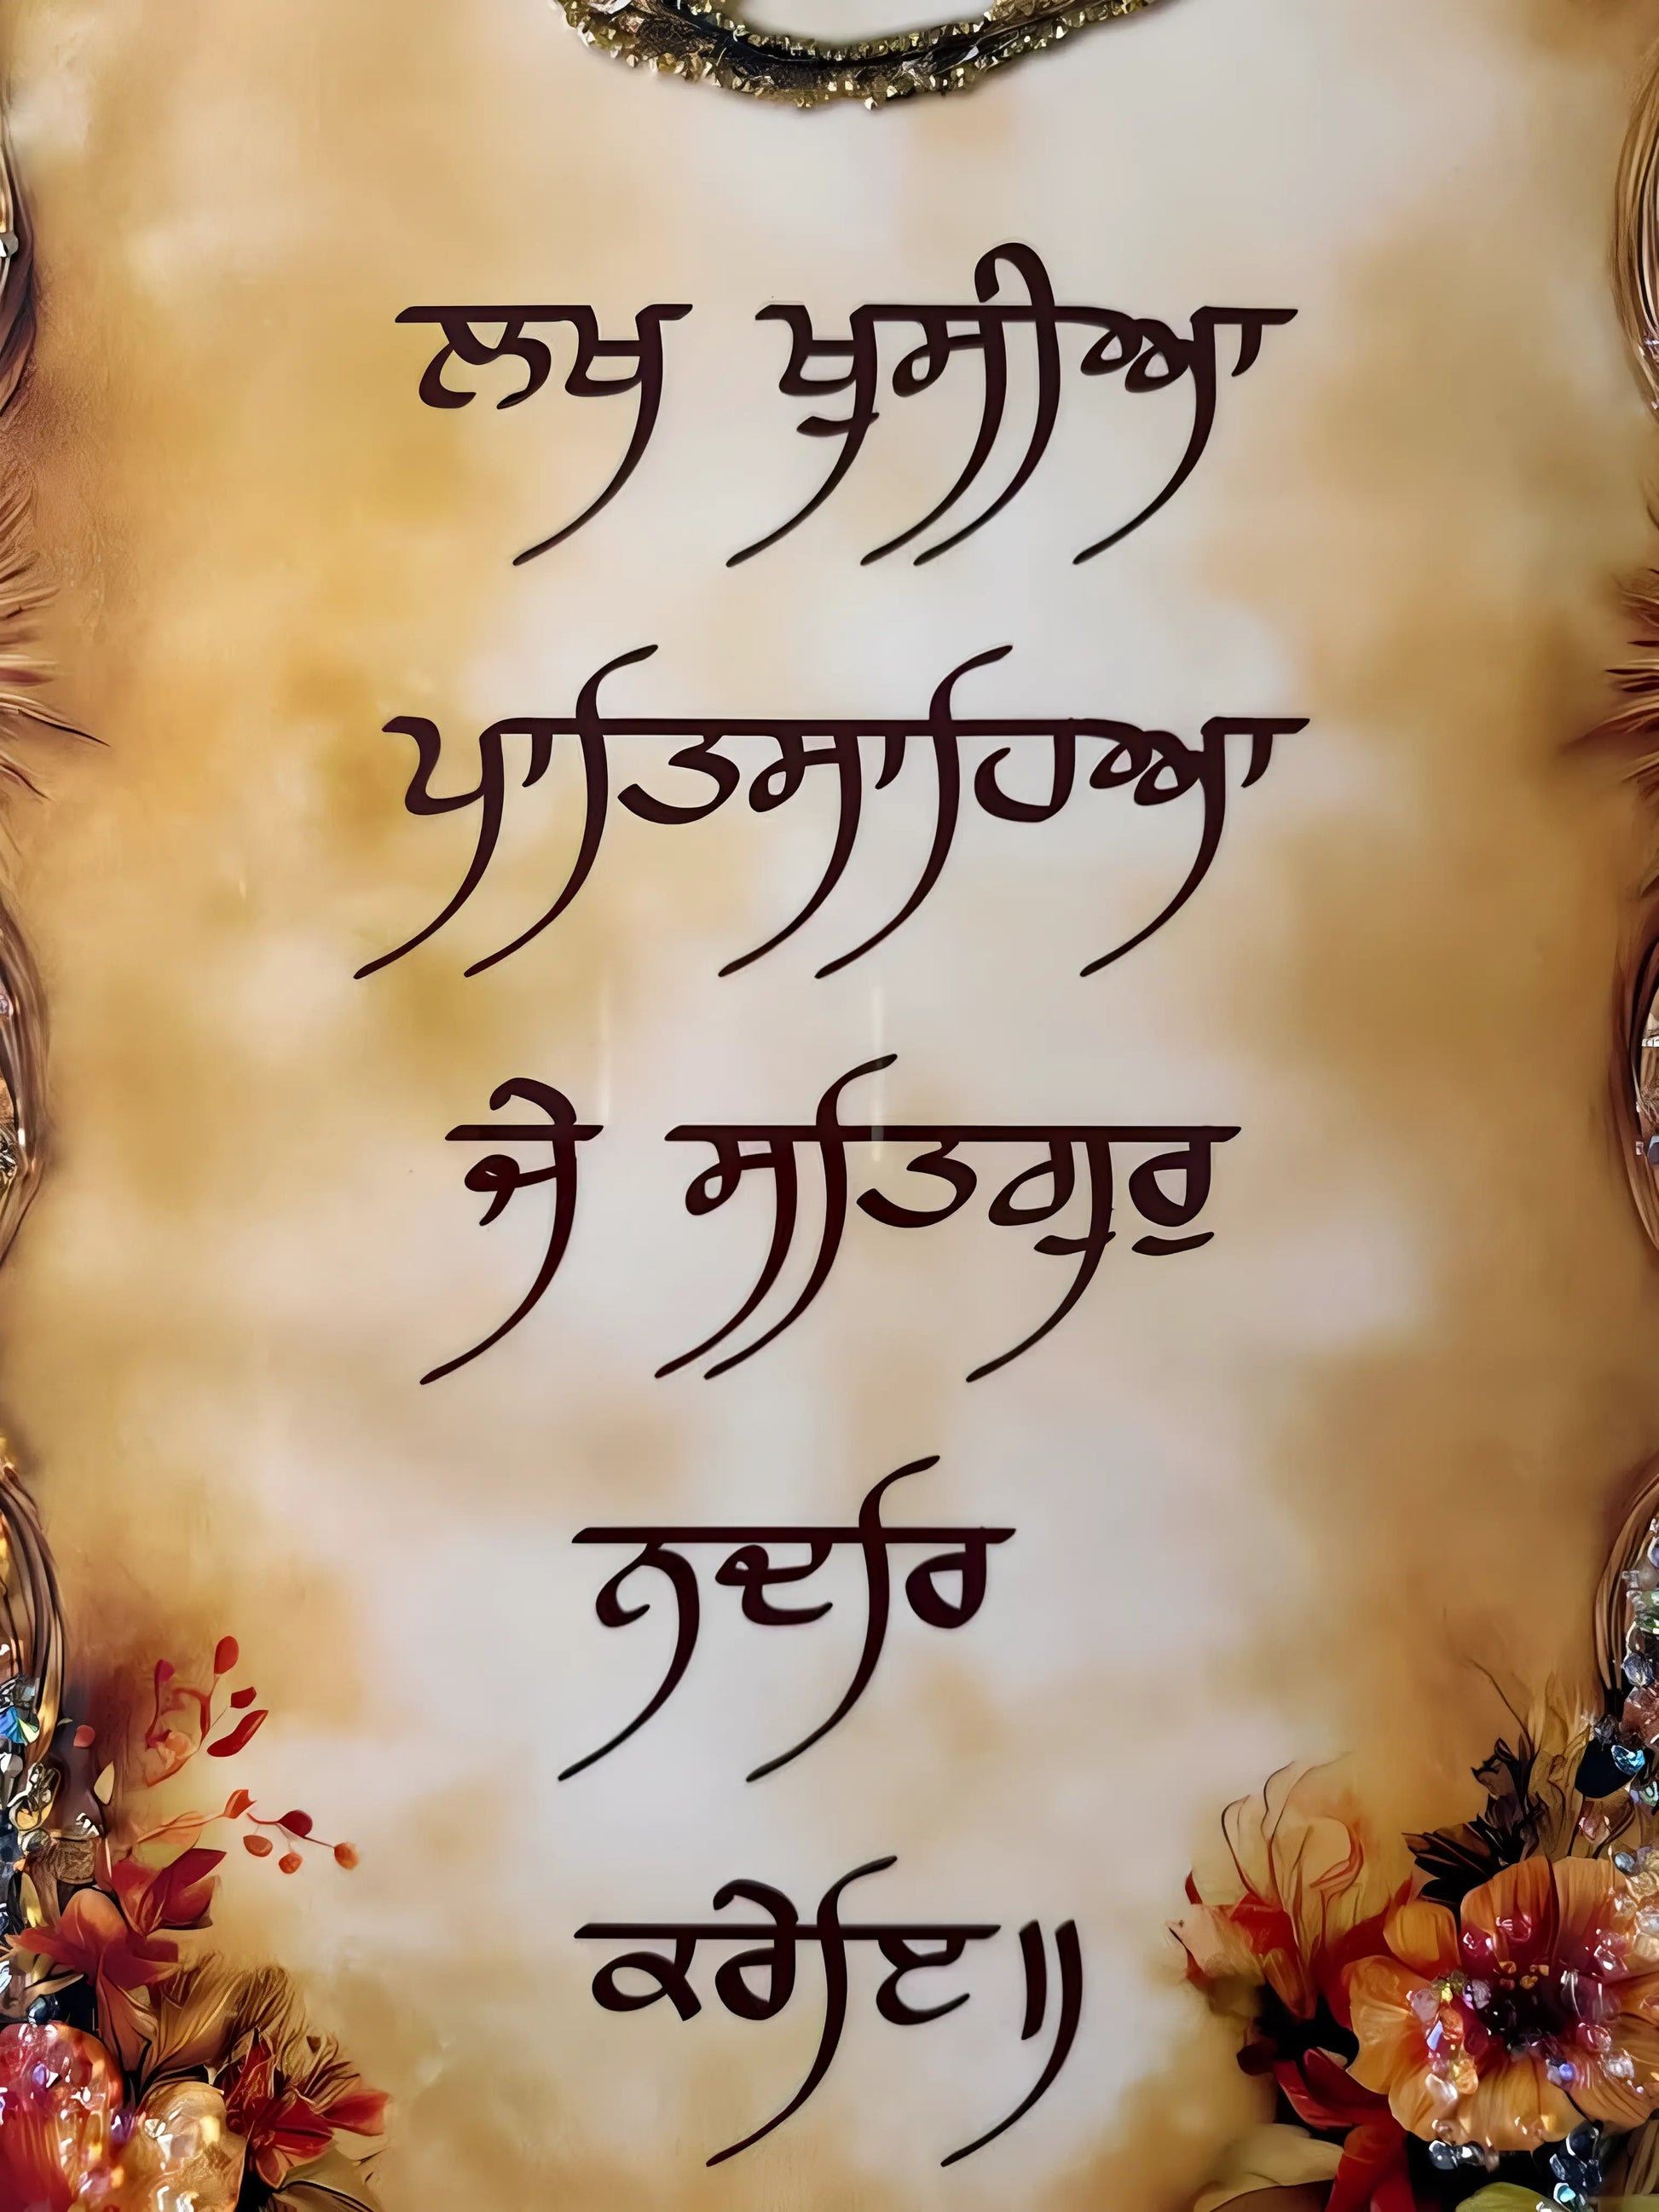 ਲਖ ਖੁਸੀਆ
ਪਾਤਿਸਾਹਿਆ
ਜੇ ਸਤਿਗੁਰੁ
ਨਦਰਿ
ਕਰੇਇ॥